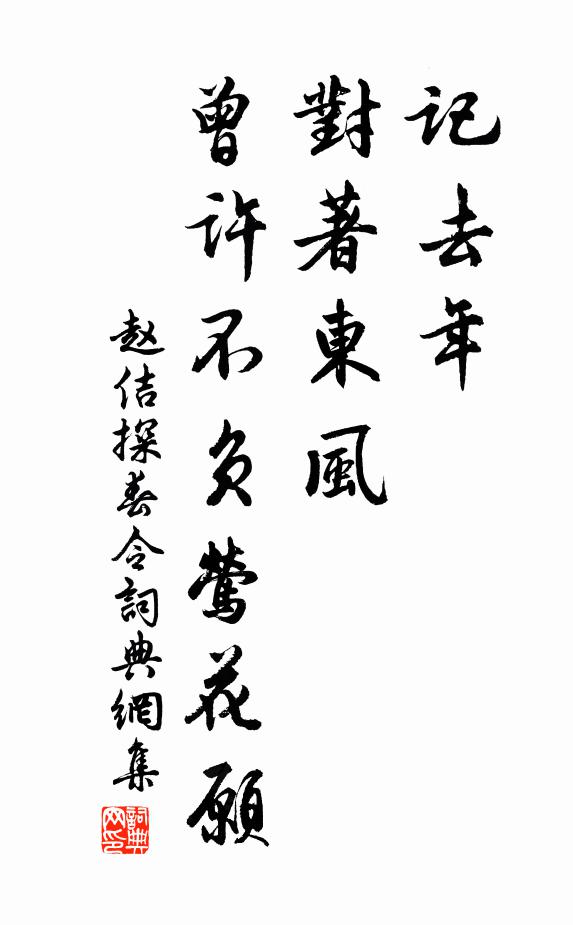 記去年
對著東風
曾許不負鶯花願
赵佶探春令詞典網集
詞典网印